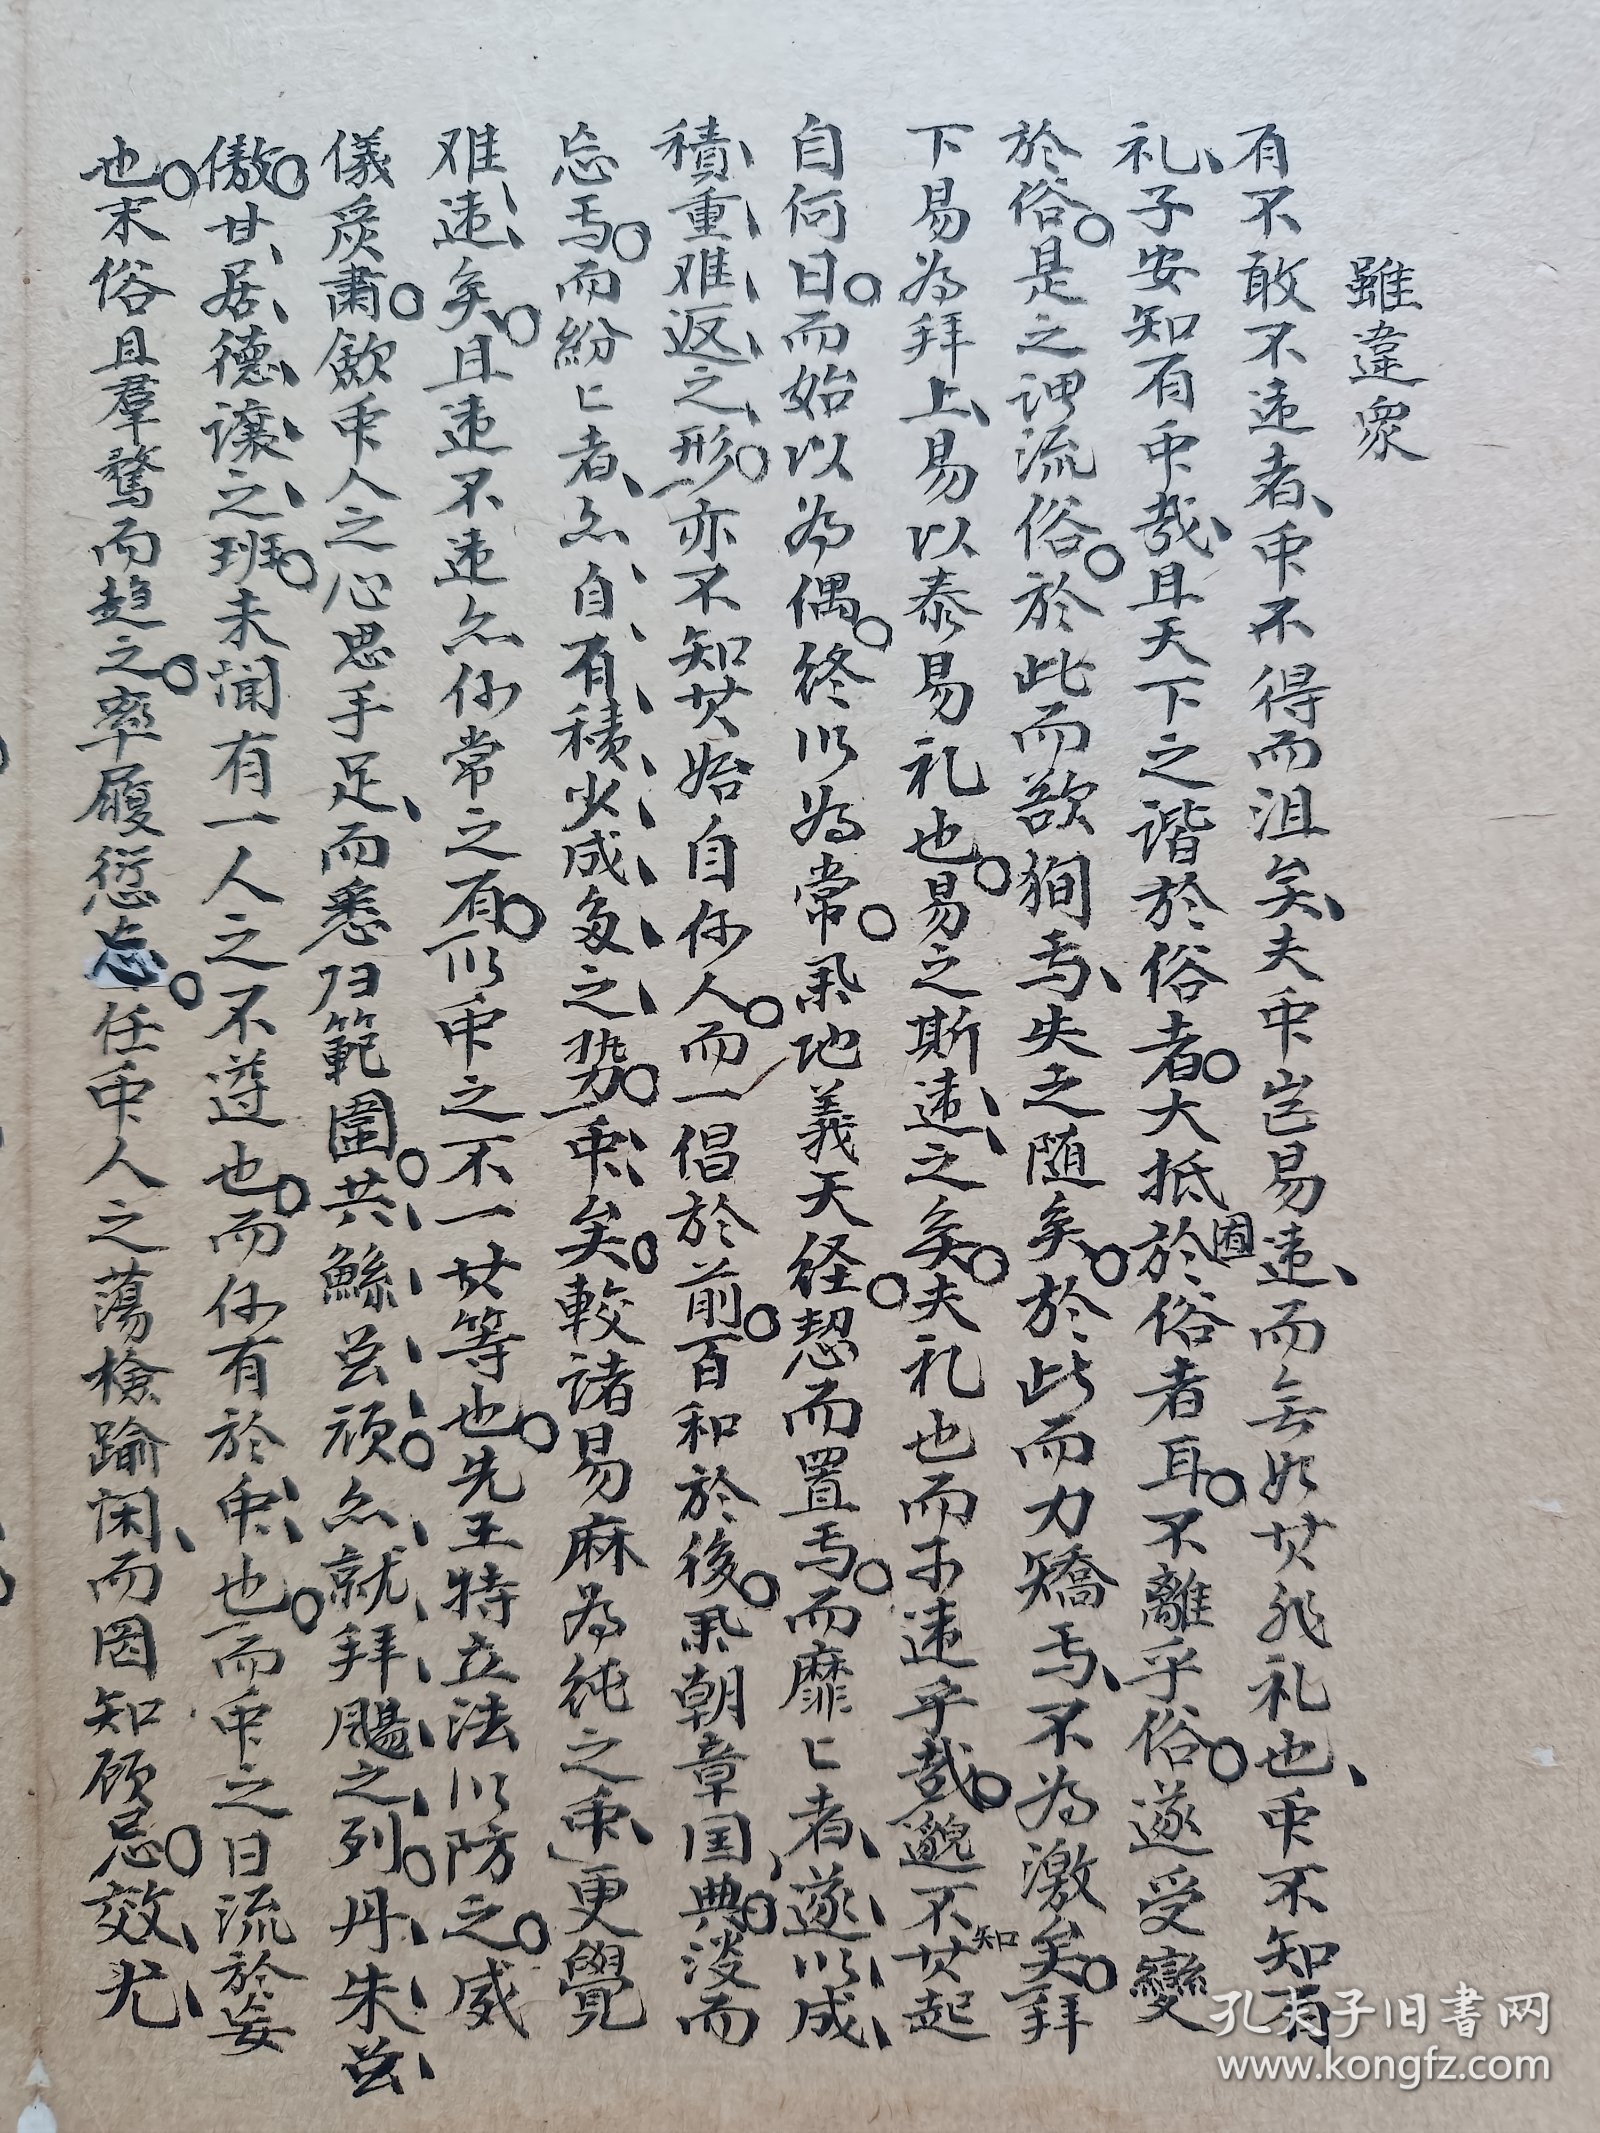 雖違眾
有不敢不違者眾不得而沮矣夫眾豈易違而無如其非礼也眾不知有
礼子安知有眾哉且天下之諧於俗者大抵囿於俗者耳不離乎俗遂受變
於俗是之谓流俗於此而欲狥焉失之随矣於此而力矯焉不为激矣拜
下易为拜上易以泰易礼也易之斯違之矣夫礼也而可違乎哉邈不知其起
自何日而始以为偶終以为常風地義天経恝而置焉而靡匕者遂以成
積重难返之形亦不知其始自何人而一倡於前百和於後風朝章国典淡而
忘焉而紛匕者亦自有積少成多之势眾矣較諸易麻为純之眾更覺
难違矣且違不違亦何常之有以眾之不一其等也先王特立法以防之威
儀爰肅歛眾人之心思手足而悉归範圍共鯀兇頑亦就拜颺之列丹朱兇
傲甘居德讓之班未闻有一人之不遵也而何有於眾也而眾之日流於妄
也末俗且羣騖而趋之率履愆忘任眾人之蕩檢踰闲而罔知顾忌效尤
孔夫子旧书网
www.kongfz.com